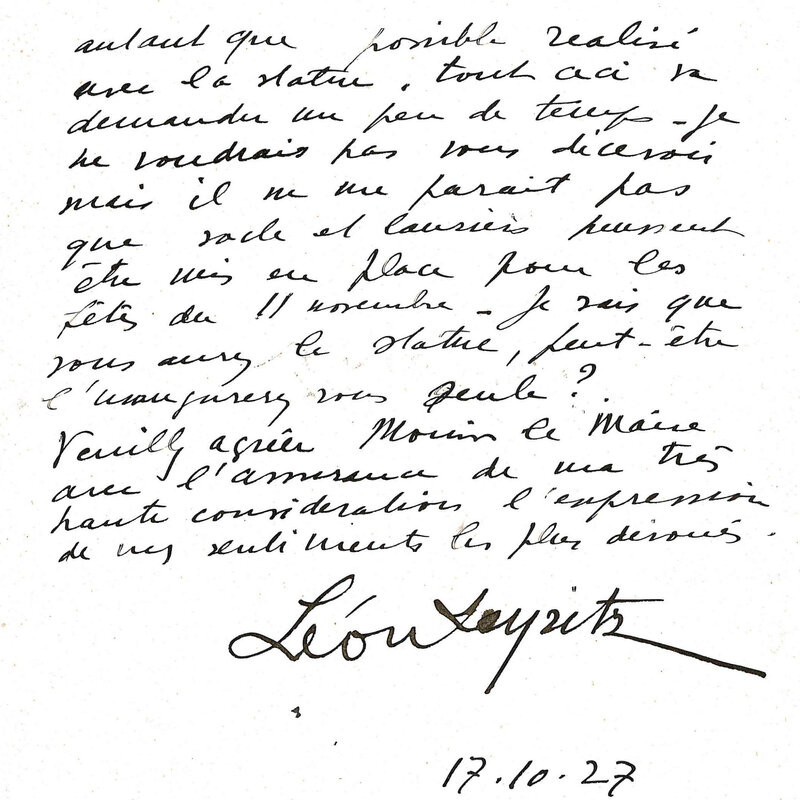 autant que possible realisé
avec la statue, tout ceci va
demander un peu de temps - je
ne voudrais pas vous décevoir
mais il ne me parait pas
que socle et lauriers puissent
être mis en place pour les
fêtes du 11 novembre - Je sais que
vous aurez la statue, peut-être
l'inaugurerez vous seule ?
Veuillez agréer Monsieur le Maire
avec l'assurance de ma très
haute considération l'expression
de mes sentiments les plus dévoués.
Léon Leyritz
17.10.27